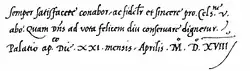 semper satisfacere conabor. ac fideliter et sincere pro. Cels.ne V.
abo: Quam Dns ad vota felicem diu conseruare dignetur.
Palatio ap. Die. XXI. mensis. Aprilis. M. D. XVIII